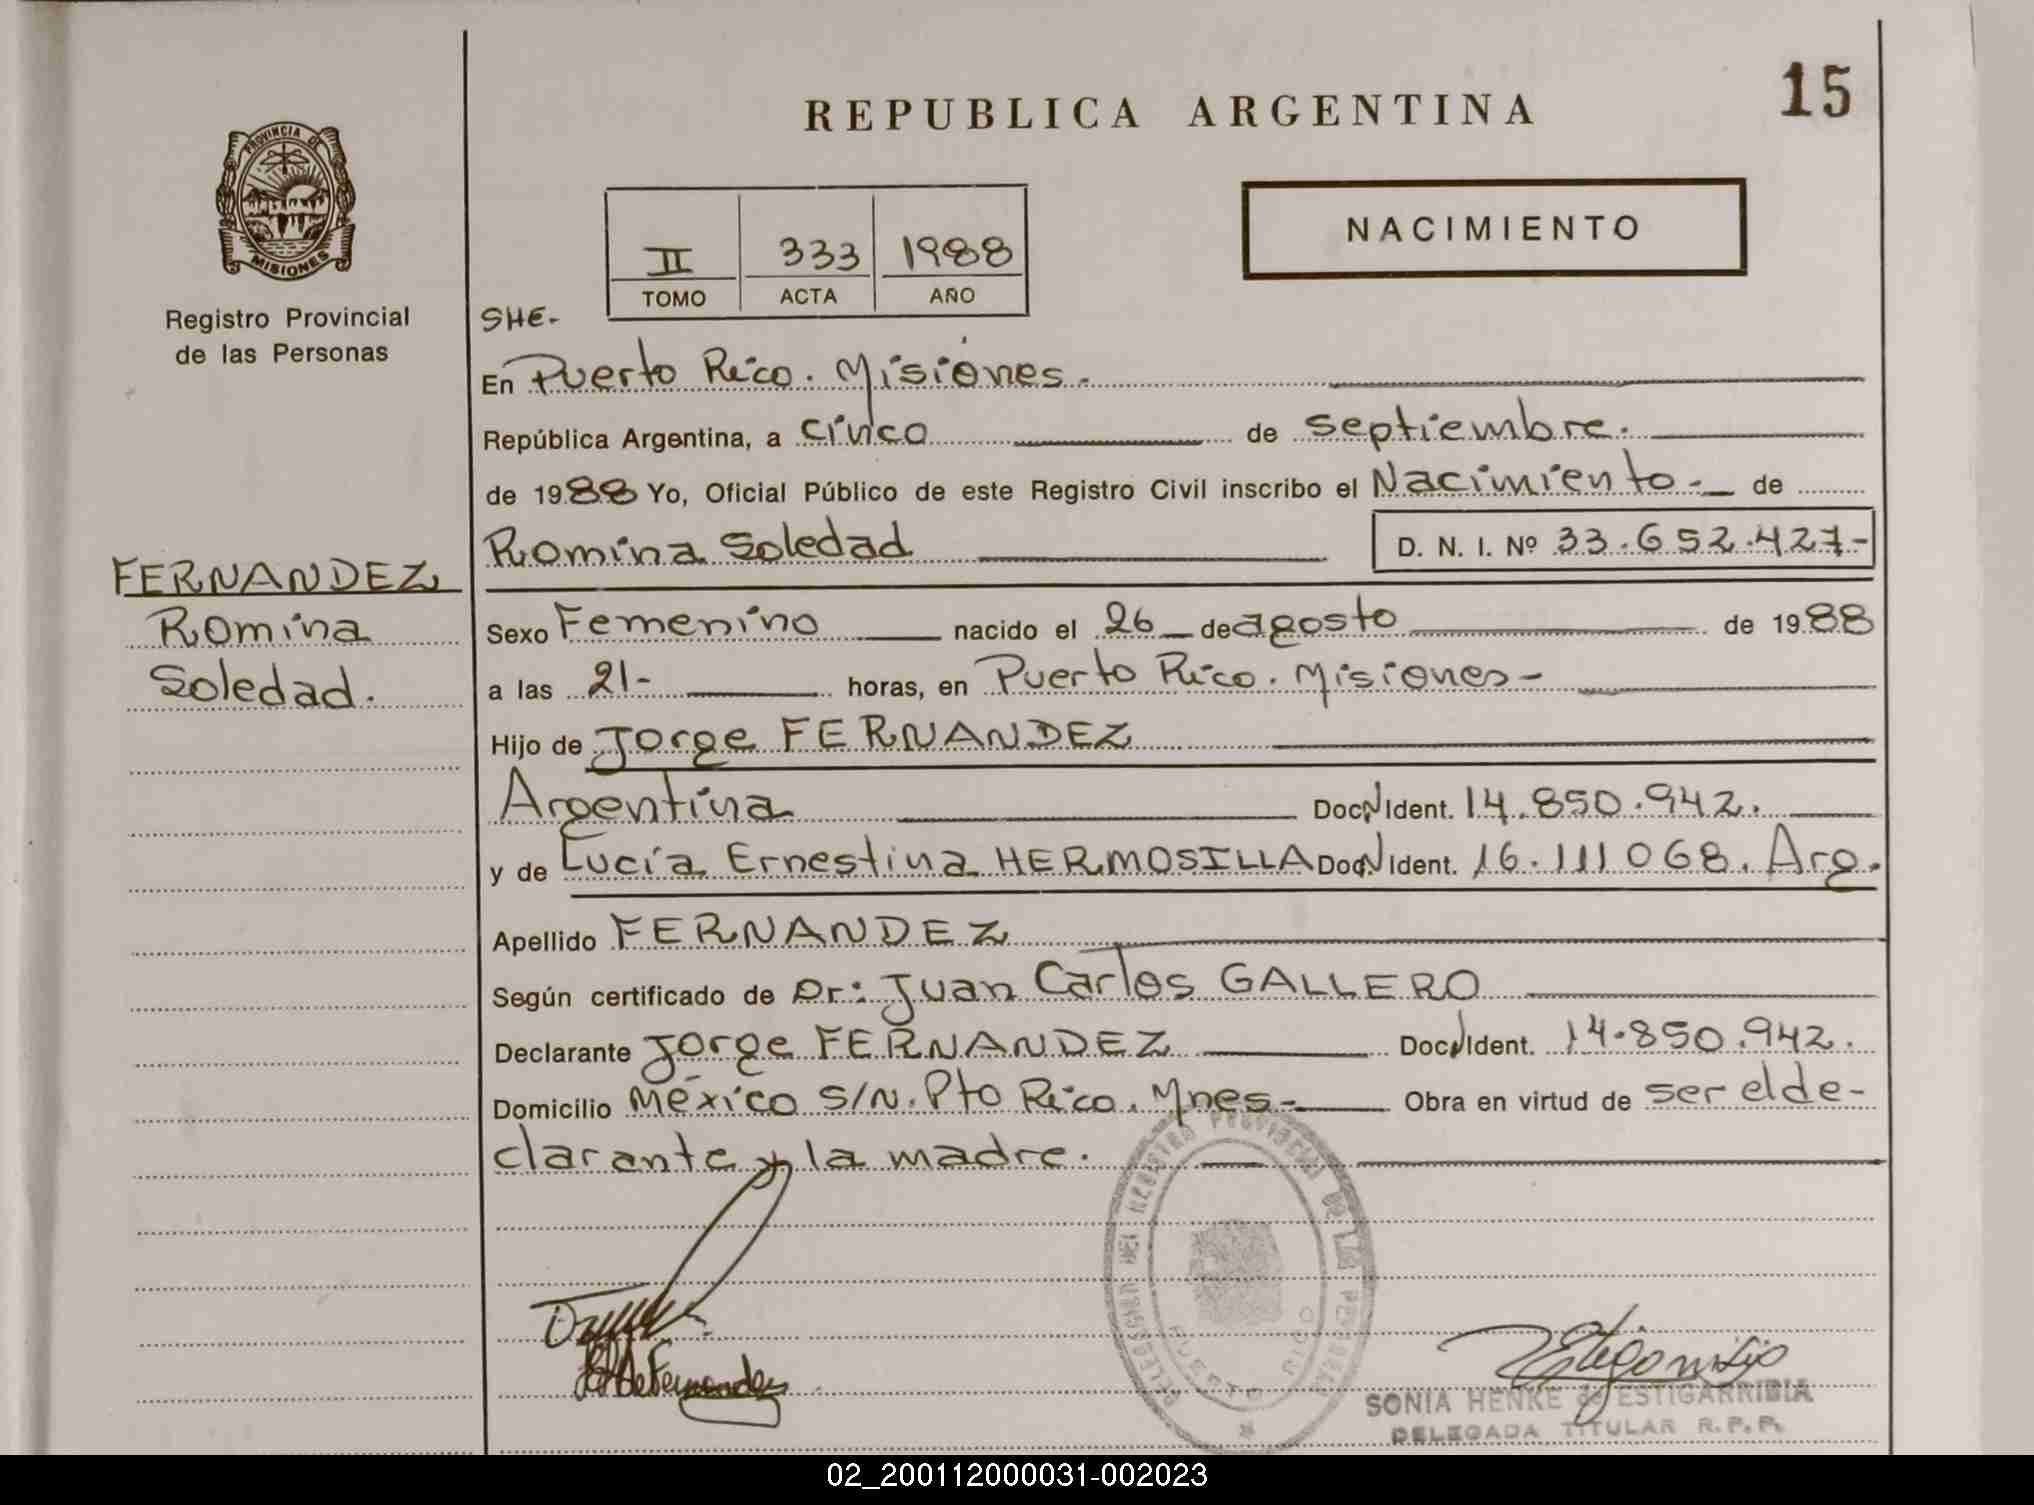 REPUBLICA ARGENTINA
15
PROVINCIA DE
MISIONES
Registro Provincial
de las Personas
II 333 1988
TOMO ACTA AÑO
NACIMIENTO
SHE-
En Puerto Rico. Misiones.
República Argentina, a cinco de septiembre.
de 1988 Yo, Oficial Público de este Registro Civil inscribo el Nacimiento.- de
Romina Soledad D. N. I. Nº 33.652.427-
FERNANDEZ
Romina
Soledad.
Sexo Femenino nacido el 26 de agosto de 1988
a las 21- horas, en Puerto Rico. Misiones-
Hijo de Jorge FERNANDEZ
Argentina Doc. Ident. 14.850.942.
y de Lucía Ernestina HERMOSILLA Doc. Ident. 16.111068. Arg.
Apellido FERNANDEZ
Según certificado de Dr: Juan Carlos GALLERO
Declarante Jorge FERNANDEZ Doc. Ident. 14.850.942.
Domicilio México S/N. Pto Rico. Mnes- Obra en virtud de ser el de-
clarante y la madre.
DELEGACION DEL REGISTRO PROVINCIAL DE LAS PERSONAS
PUERTO RICO
de Fernandez
SONIA HENKE de ESTIGARRIBIA
DELEGADA TITULAR R.P.P.
02_200112000031-002023